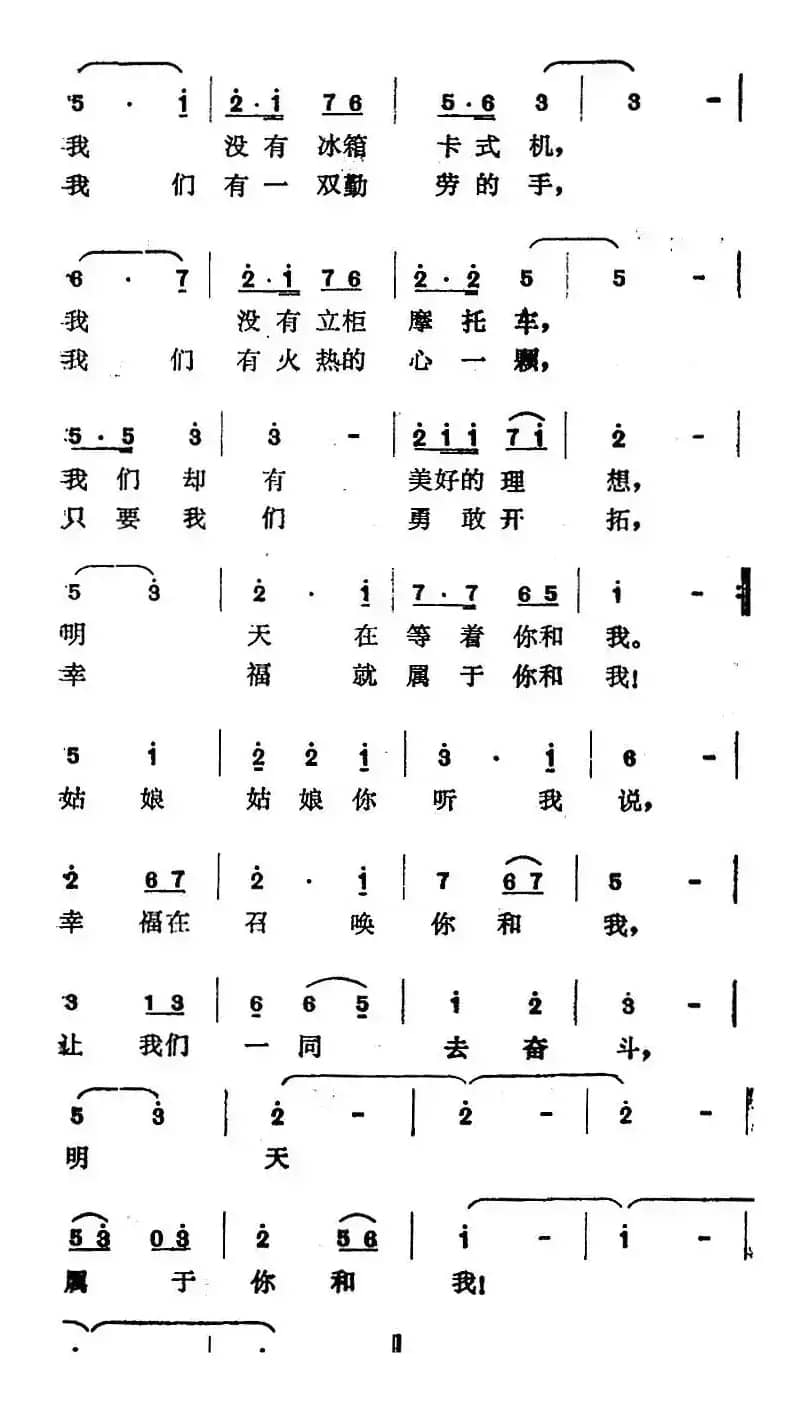 5 · i | 2 · i 7 6 | 5 · 6 3 | 3 - |
我 没有冰箱 卡式机，
我们有一双勤 劳的手，
6 · 7 | 2 · i 7 6 | 2 · 2 5 | 5 - |
我 没有立柜 摩托车，
我们有火热的 心一颗，
5 · 5 3 | 3 - | 2 i i 7 i | 2 - |
我们却有 美好的理想，
只要我们 勇敢开拓，
5 3 | 2 · i | 7 · 7 6 5 | i - :|
明天在等着你和我。
幸福就属于你和我！
5 i | 2 2 i | 3 · i | 6 - |
姑娘姑娘你听我说，
2 6 7 | 2 · i | 7 6 7 | 5 - |
幸福在召唤你和我，
3 1 3 | 6 6 5 | i 2 | 3 - |
让我们一同去奋斗，
5 3 | 2 - | 2 - | 2 - |
明天
5 3 0 3 | 2 5 6 | i - | i - |
属于你和我！